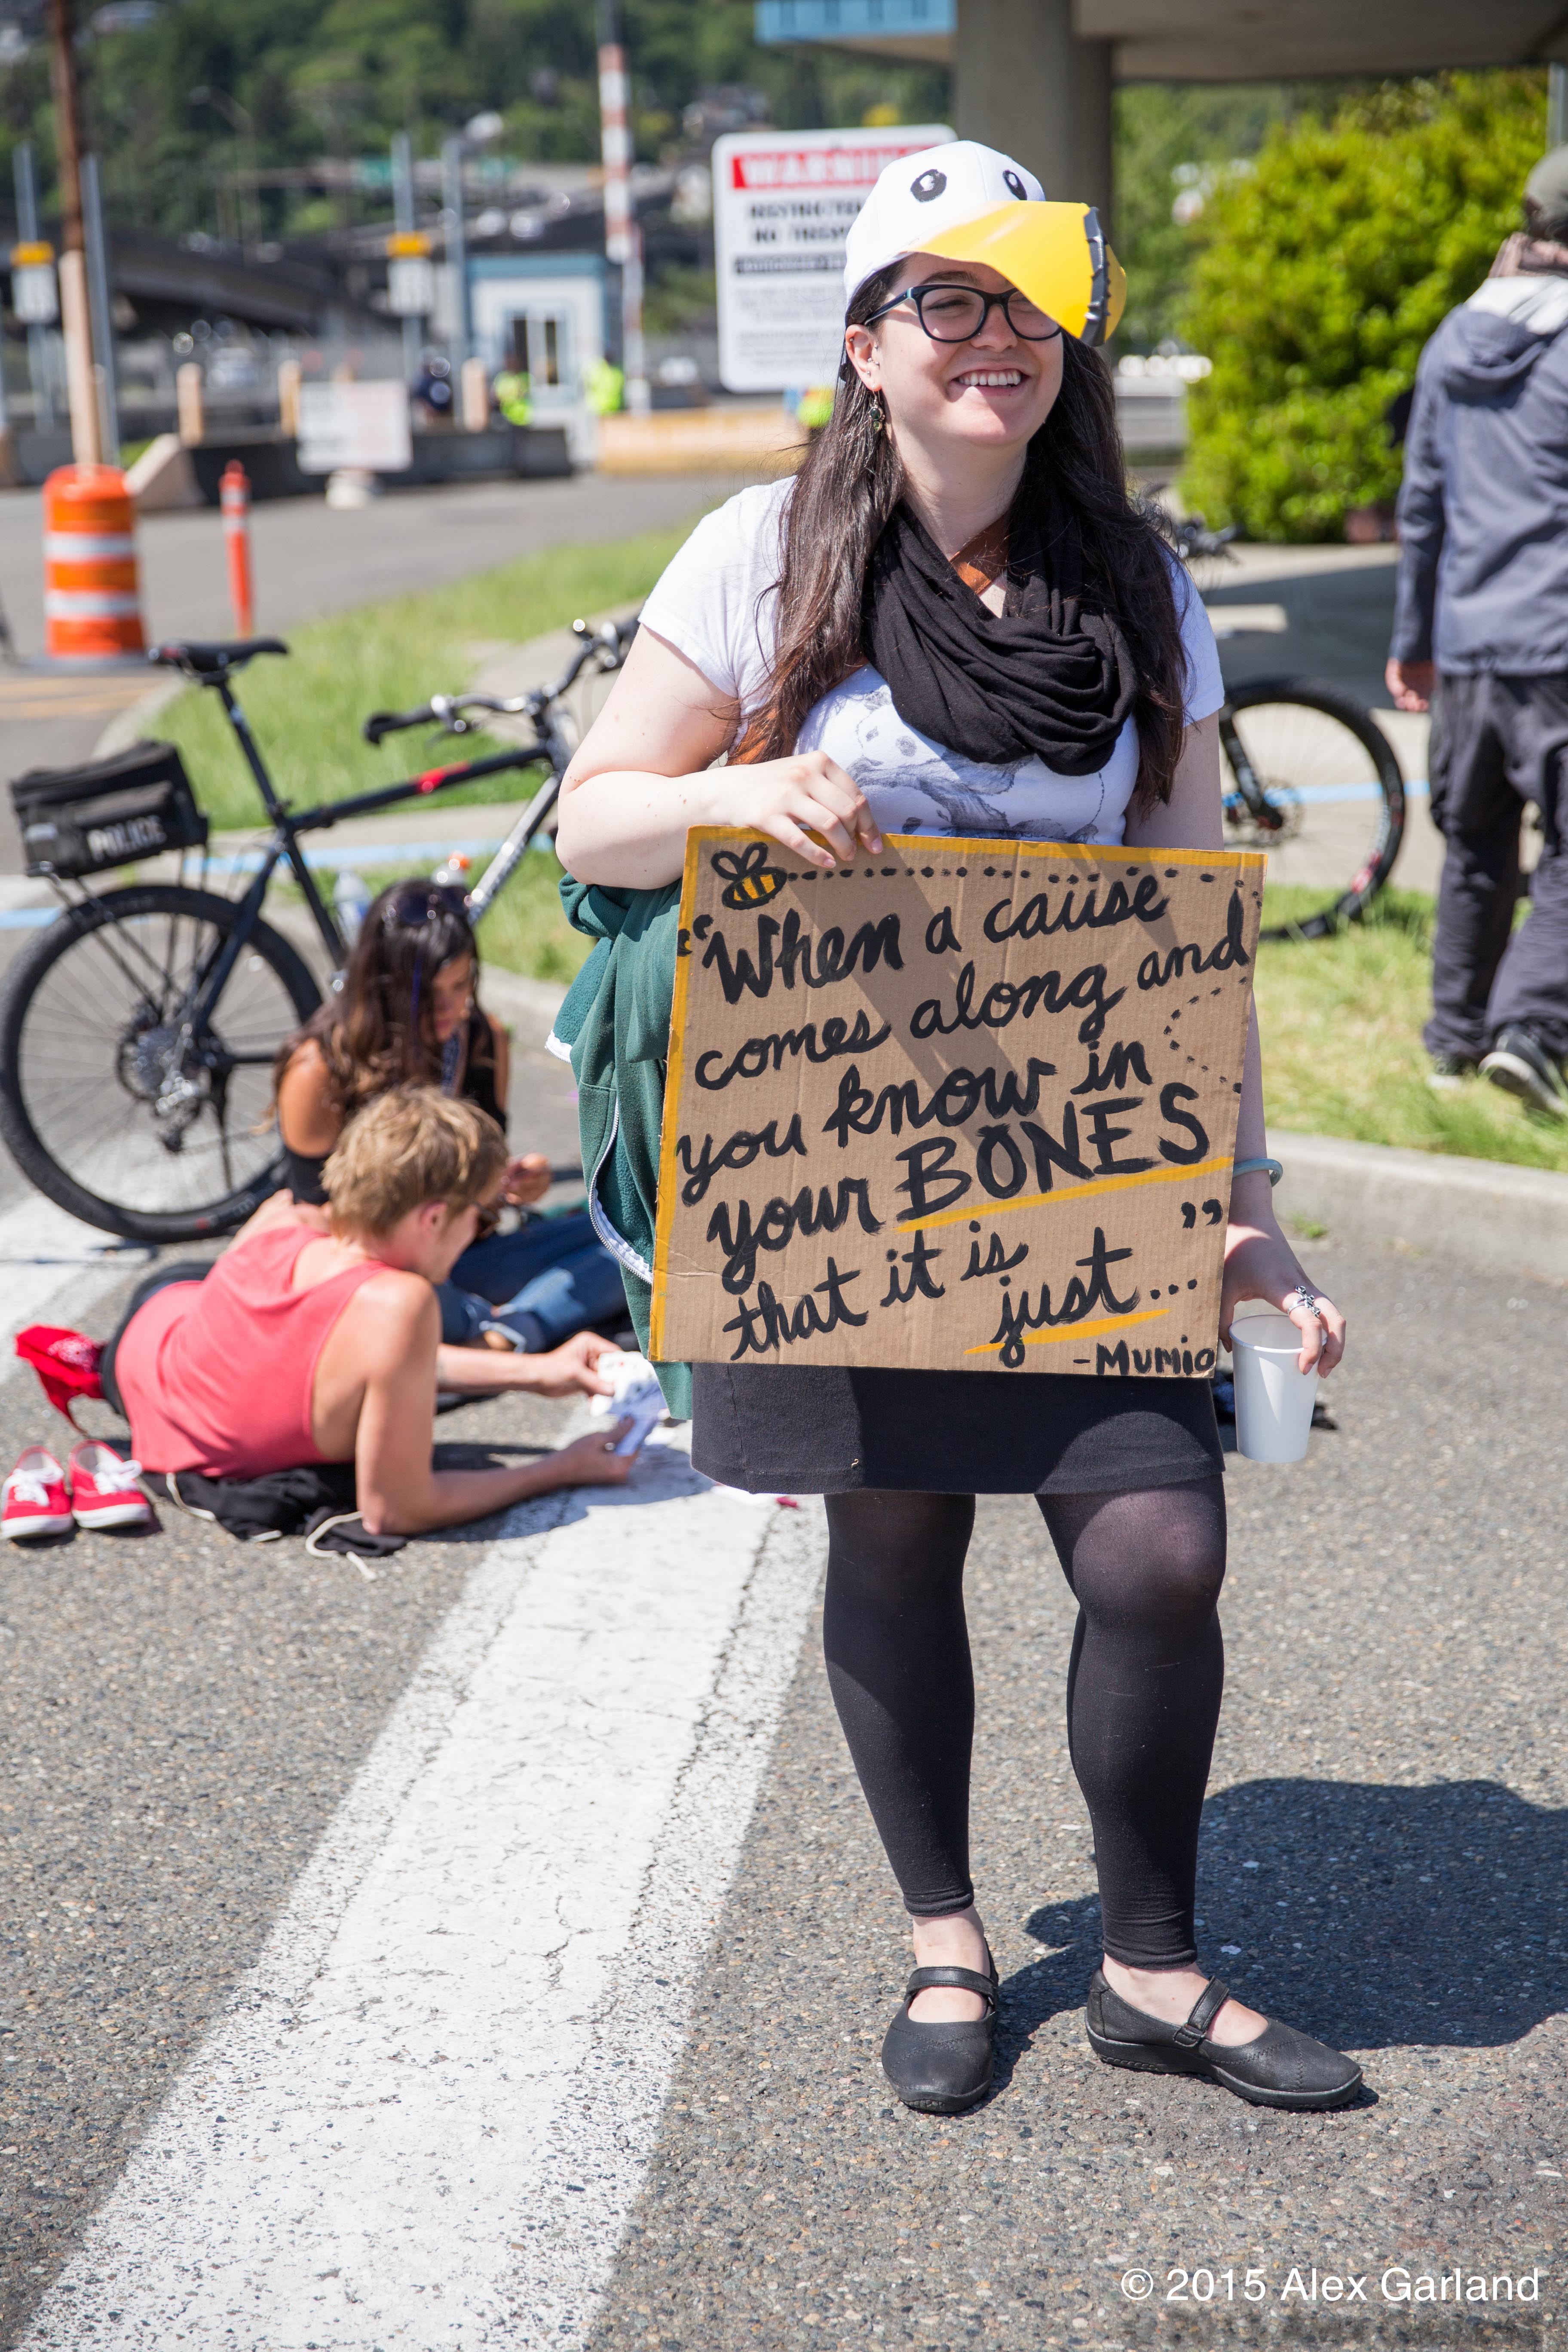 WARNING
RESTRICTED
NO TRESP
POLICE
"When a cause
comes along and
you know in
your BONES
that it is
just..."
-Mumia
© 2015 Alex Garland